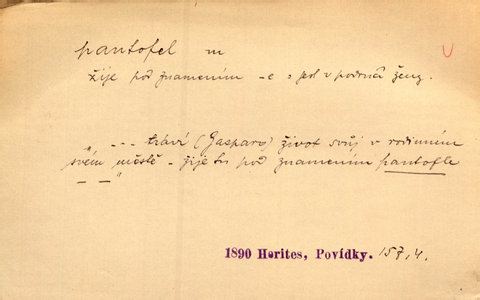 pantofel m
žije pod znamením –e = jest v područí ženy.
„ - - - tráví (Gasparo) život svůj v rodinném
svém městě – žije tu pod znamením pantofle
— — "
1890 Herites, Povídky. 157,4.